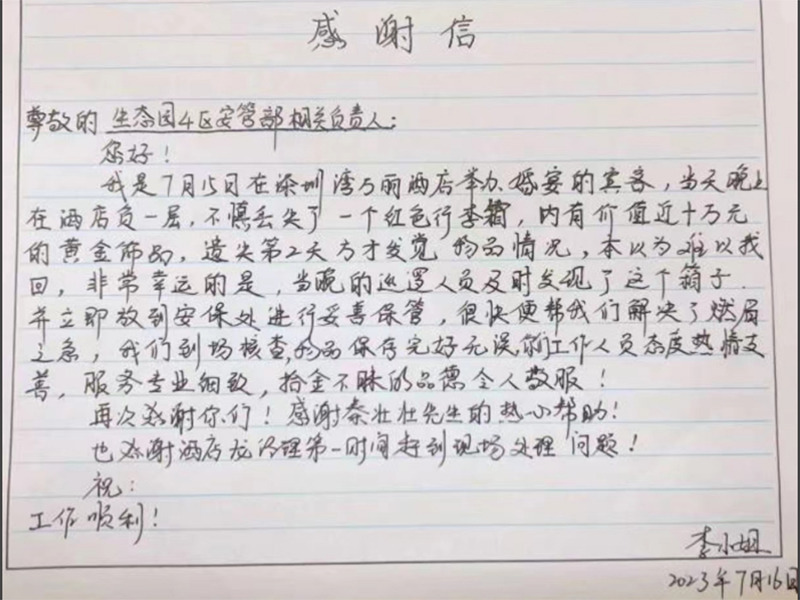 感谢信
尊敬的 生态园4区安管部相关负责人:
您好!
我是7月15日在深圳湾万丽酒店举办婚宴的宾客,当天晚上
在酒店负一层,不慎丢失了一个红色行李箱,内有价值近十万元
的黄金饰品,遗失第2天方才发觉物品情况,本以为难以找
回,非常幸运的是,当晚的巡逻人员及时发现了这个箱子.
并立即放到安保处进行妥善保管,很快便帮我们解决了燃眉
之急,我们到场核查,物品保存完好无误,你们工作人员态度热情友
善,服务专业细致,拾金不昧的品德令人敬服!
再次感谢你们!感谢秦壮壮先生的热心帮助!
也感谢酒店龙经理第一时间赶到现场处理问题!
祝:
工作顺利!
李小姐
2023年7月16日